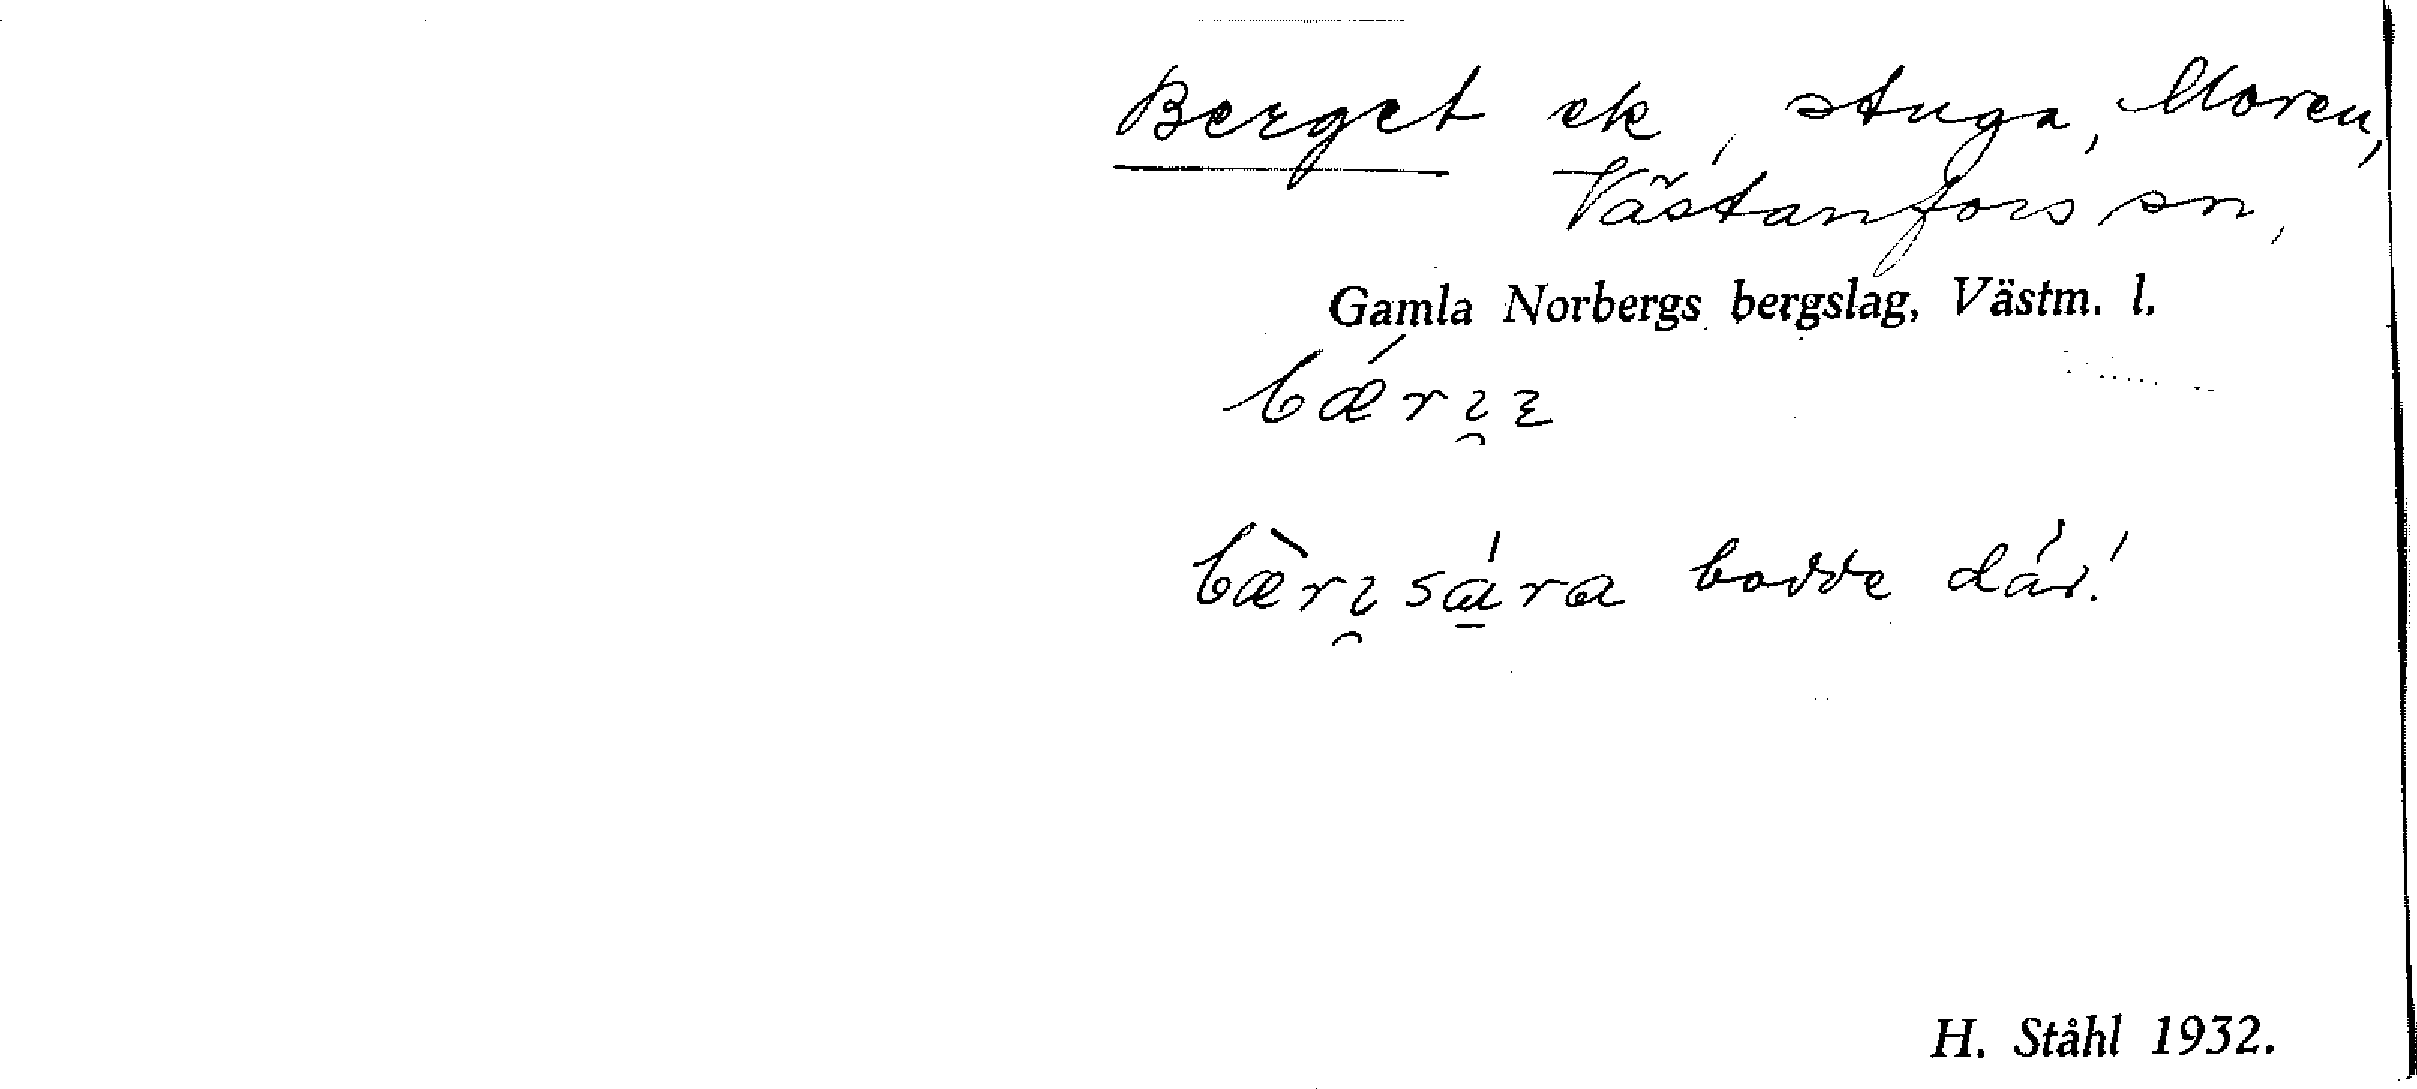 Berget ek, stuga, Moren,
Västanfors sn,
Gamla Norbergs bergslag, Västm. l.
bǽrı̯ɛ
bæ̀rı̯sá̱ra bodde där!
H. Ståhl 1932.